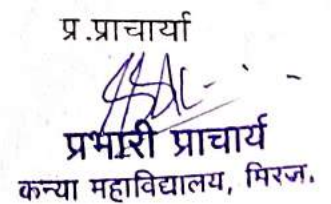 प्र .प्राचार्या
प्रभारी प्राचार्य
कन्या महाविद्यालय, मिरज.